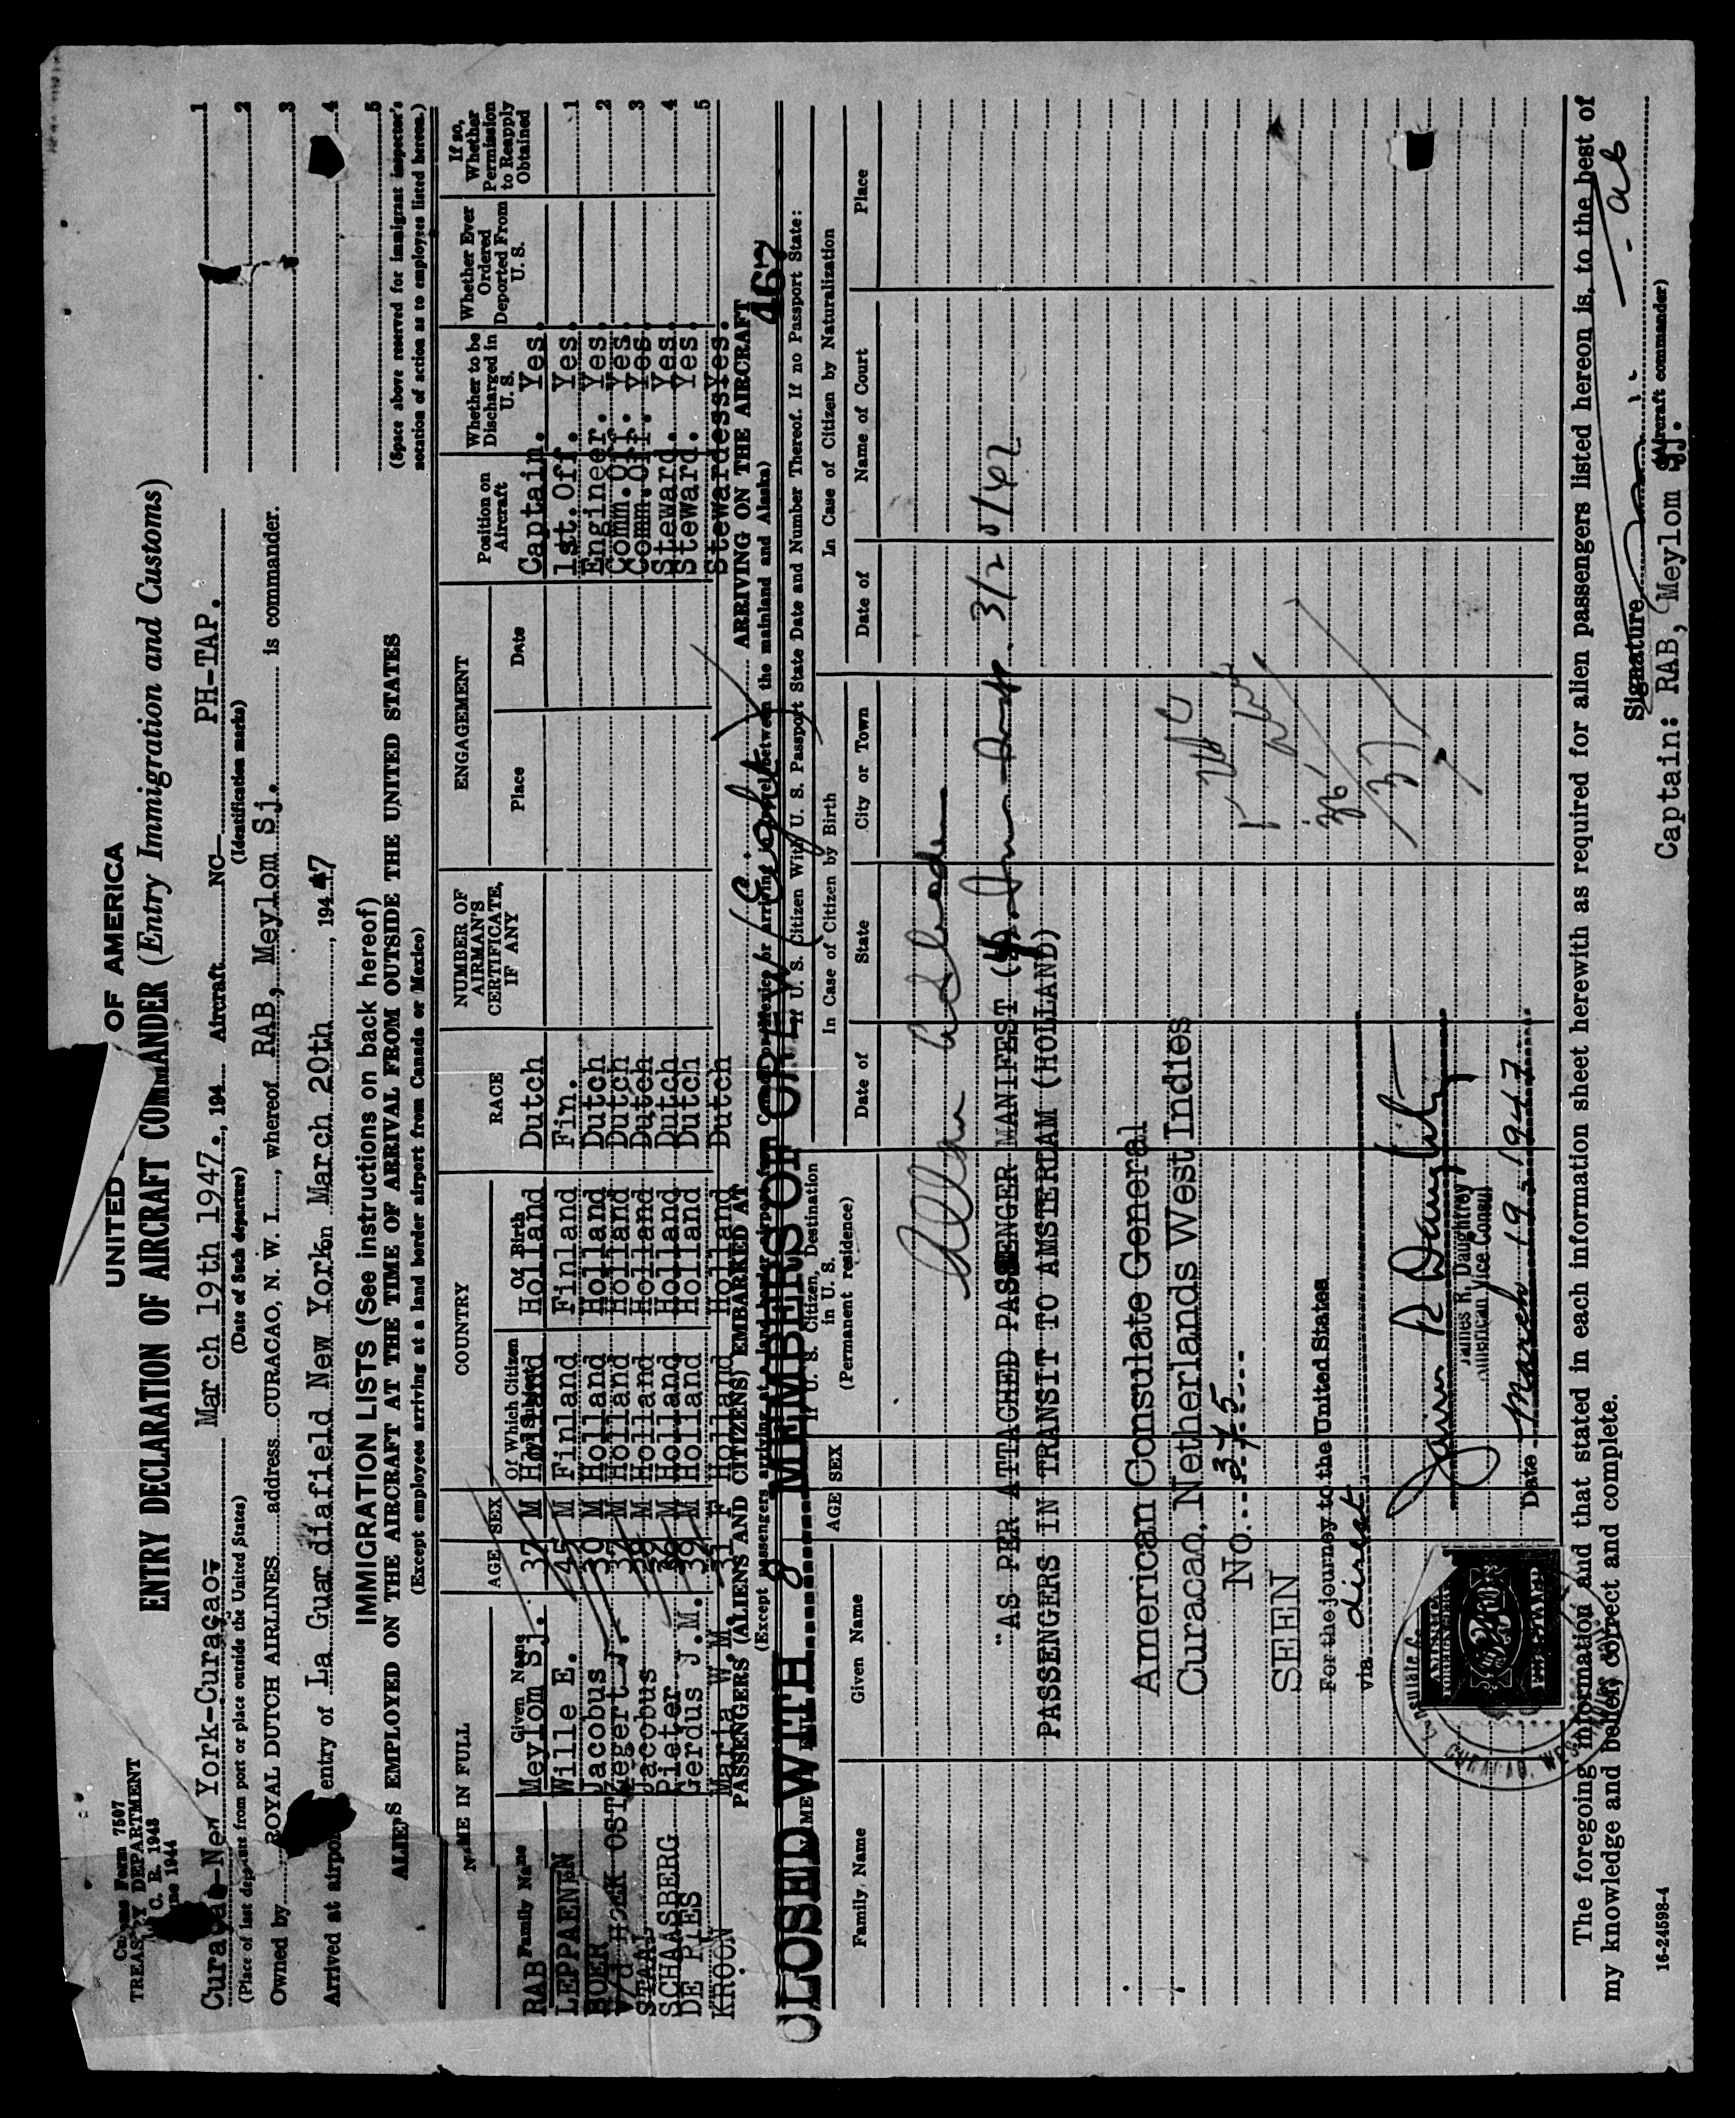 Customs Form 7507
TREASURY DEPARTMENT
C. R. 1943
1944
UNITED OF AMERICA
ENTRY DECLARATION OF AIRCRAFT COMMANDER (Entry Immigration and Customs)
New York-Curaçao March 19th 1947., 194 Aircraft NC- PH-TAP. 1
(Place of last departure from port or place outside the United States) (Date of Such departure) (Identification marks) 2
Owned by ROYAL DUTCH AIRLINES address CURACAO, N. W. I., whereof RAB, Meylom Sj. is commander. 3
Arrived at airport entry of La Guardiafield New York on March 20th, 1947 4
5
IMMIGRATION LISTS (See instructions on back hereof)
(Space above reserved for immigrant inspector's notation of action as to employees listed hereon.)
ALIENS EMPLOYED ON THE AIRCRAFT AT THE TIME OF ARRIVAL FROM OUTSIDE THE UNITED STATES
(Except employees arriving at a land border airport from Canada or Mexico)
NAME IN FULL AGE SEX COUNTRY RACE NUMBER OF AIRMAN'S CERTIFICATE, IF ANY ENGAGEMENT Position on Aircraft Whether to be Discharged in U. S. Whether Ever Ordered Deported From U. S. If so, Whether Permission to Reapply Obtained
Family Name Given Name Of Which Citizen or Subject Of Birth Place Date
RAB Meylom Sj. 37 M Holland Holland Dutch Captain. Yes.
LEPPAENEN Wille E. 45 M Finland Finland Fin. 1st.Off. Yes. 1
BOER Jacobus 39 M Holland Holland Dutch Engineer. Yes. 2
v/d HOEK OSTZegert J. M Holland Holland Dutch Comm.Off. Yes. 3
STAAL Jacobus M Holland Holland Dutch Comm.Off. Yes.
SCHAASBERG Pieter M Holland Holland Dutch Steward. Yes. 4
DE RIES Gerdus J.M. 39 M Holland Holland Dutch Steward. Yes. 5
KROON Maria W.M. 31 F Holland Holland Dutch StewardessYes.
PASSENGERS (ALIENS AND CITIZENS) EMBARKED AT ARRIVING ON THE AIRCRAFT
(Except passengers arriving at a land border airport from Canada or Mexico or arriving in travel between the mainland and Alaska)
CLOSED WITH 8 MEMBERS OF CREW (Eight)
If U. S. Citizen With U. S. Passport State Date and Number Thereof. If no Passport State:
AGE SEX If U. S. Citizen, Destination in U. S. (Permanent residence) In Case of Citizen by Birth In Case of Citizen by Naturalization
Family Name Given Name Date of State City or Town Date of Name of Court Place
"AS PER ATTACHED PASSENGER MANIFEST
PASSENGERS IN TRANSIT TO AMSTERDAM (HOLLAND)
American Consulate General
Curacao, Netherlands West Indies
No. 375
SEEN
For the journey to the United States
via direct
James R. Daughtrey
American Vice Consul
Date March 19 1947
The foregoing information and that stated in each information sheet herewith as required for alien passengers listed hereon is, to the best of
my knowledge and belief, correct and complete.
Signature
(Aircraft commander)
16-24598-4
Captain: RAB, Meylom Sj.